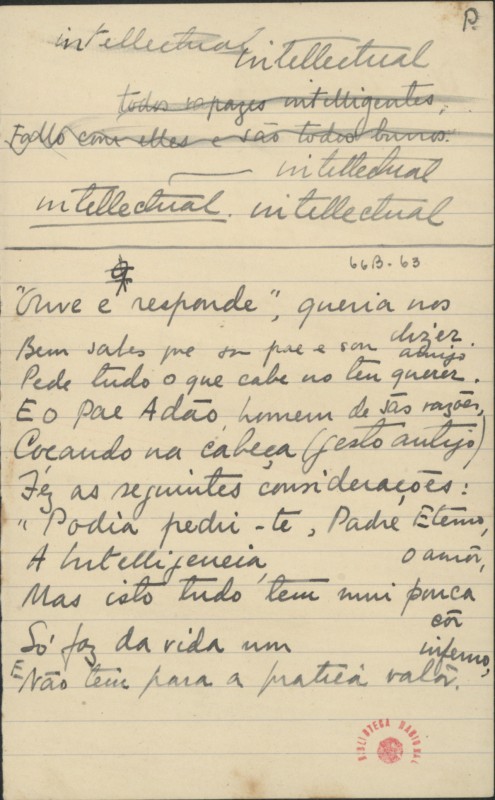 P.
intellectual intellectual
todos rapazes intelligentes,
Fallo com elles e são todos burros.
intellectual
intellectual. intellectual
66B-63
"Ouve e responde", queria nos dizer.
Bem sabes que sou pae e sou amigo
Pede tudo o que cabe no teu querer.
E o Pae Adão, homem de sãs razões,
Coçando na cabeça (gesto antigo)
Fez as seguintes considerações:
"Podia pedir-te, Padre Eterno,
A Intelligencia, o amôr,
Mas isto tudo tem mui pouca côr
Só faz da vida um inferno,
E Não tem para a pratica valôr.
BIBLIOTECA NACIONAL